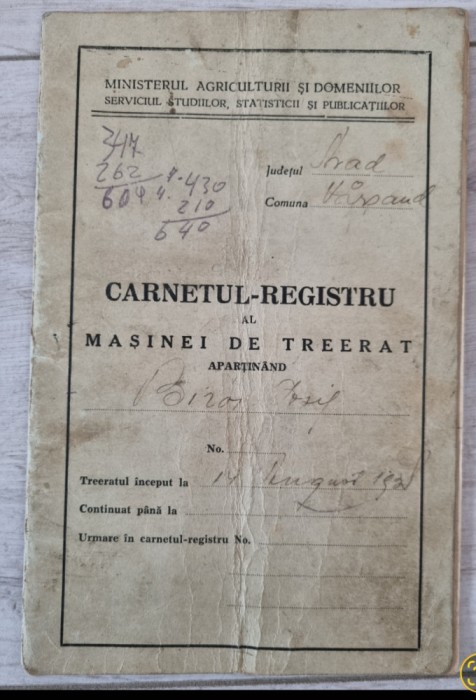 MINISTERUL AGRICULTURII ȘI DOMENIILOR
SERVICIUL STUDIILOR, STATISTICII ȘI PUBLICAȚIILOR
347
262
604
430
210
640
Județul Arad
Comuna Vărșand
CARNETUL-REGISTRU
AL
MAȘINEI DE TREERAT
APARȚINÂND
Biro Iosif
No.
Treeratul început la 14 August 192
Continuat până la
Urmare în carnetul-registru No.